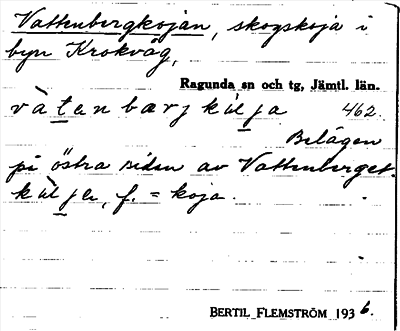 Vattenbergkojan, skogskoja i
byn Krokvåg,
Ragunda sn och tg, Jämtl. län.
vàtenbærjkùlja 462.
Belägen
på östra sidan av Vattenberget.
kùlja, f. = koja.
BERTIL FLEMSTRÖM 1936.